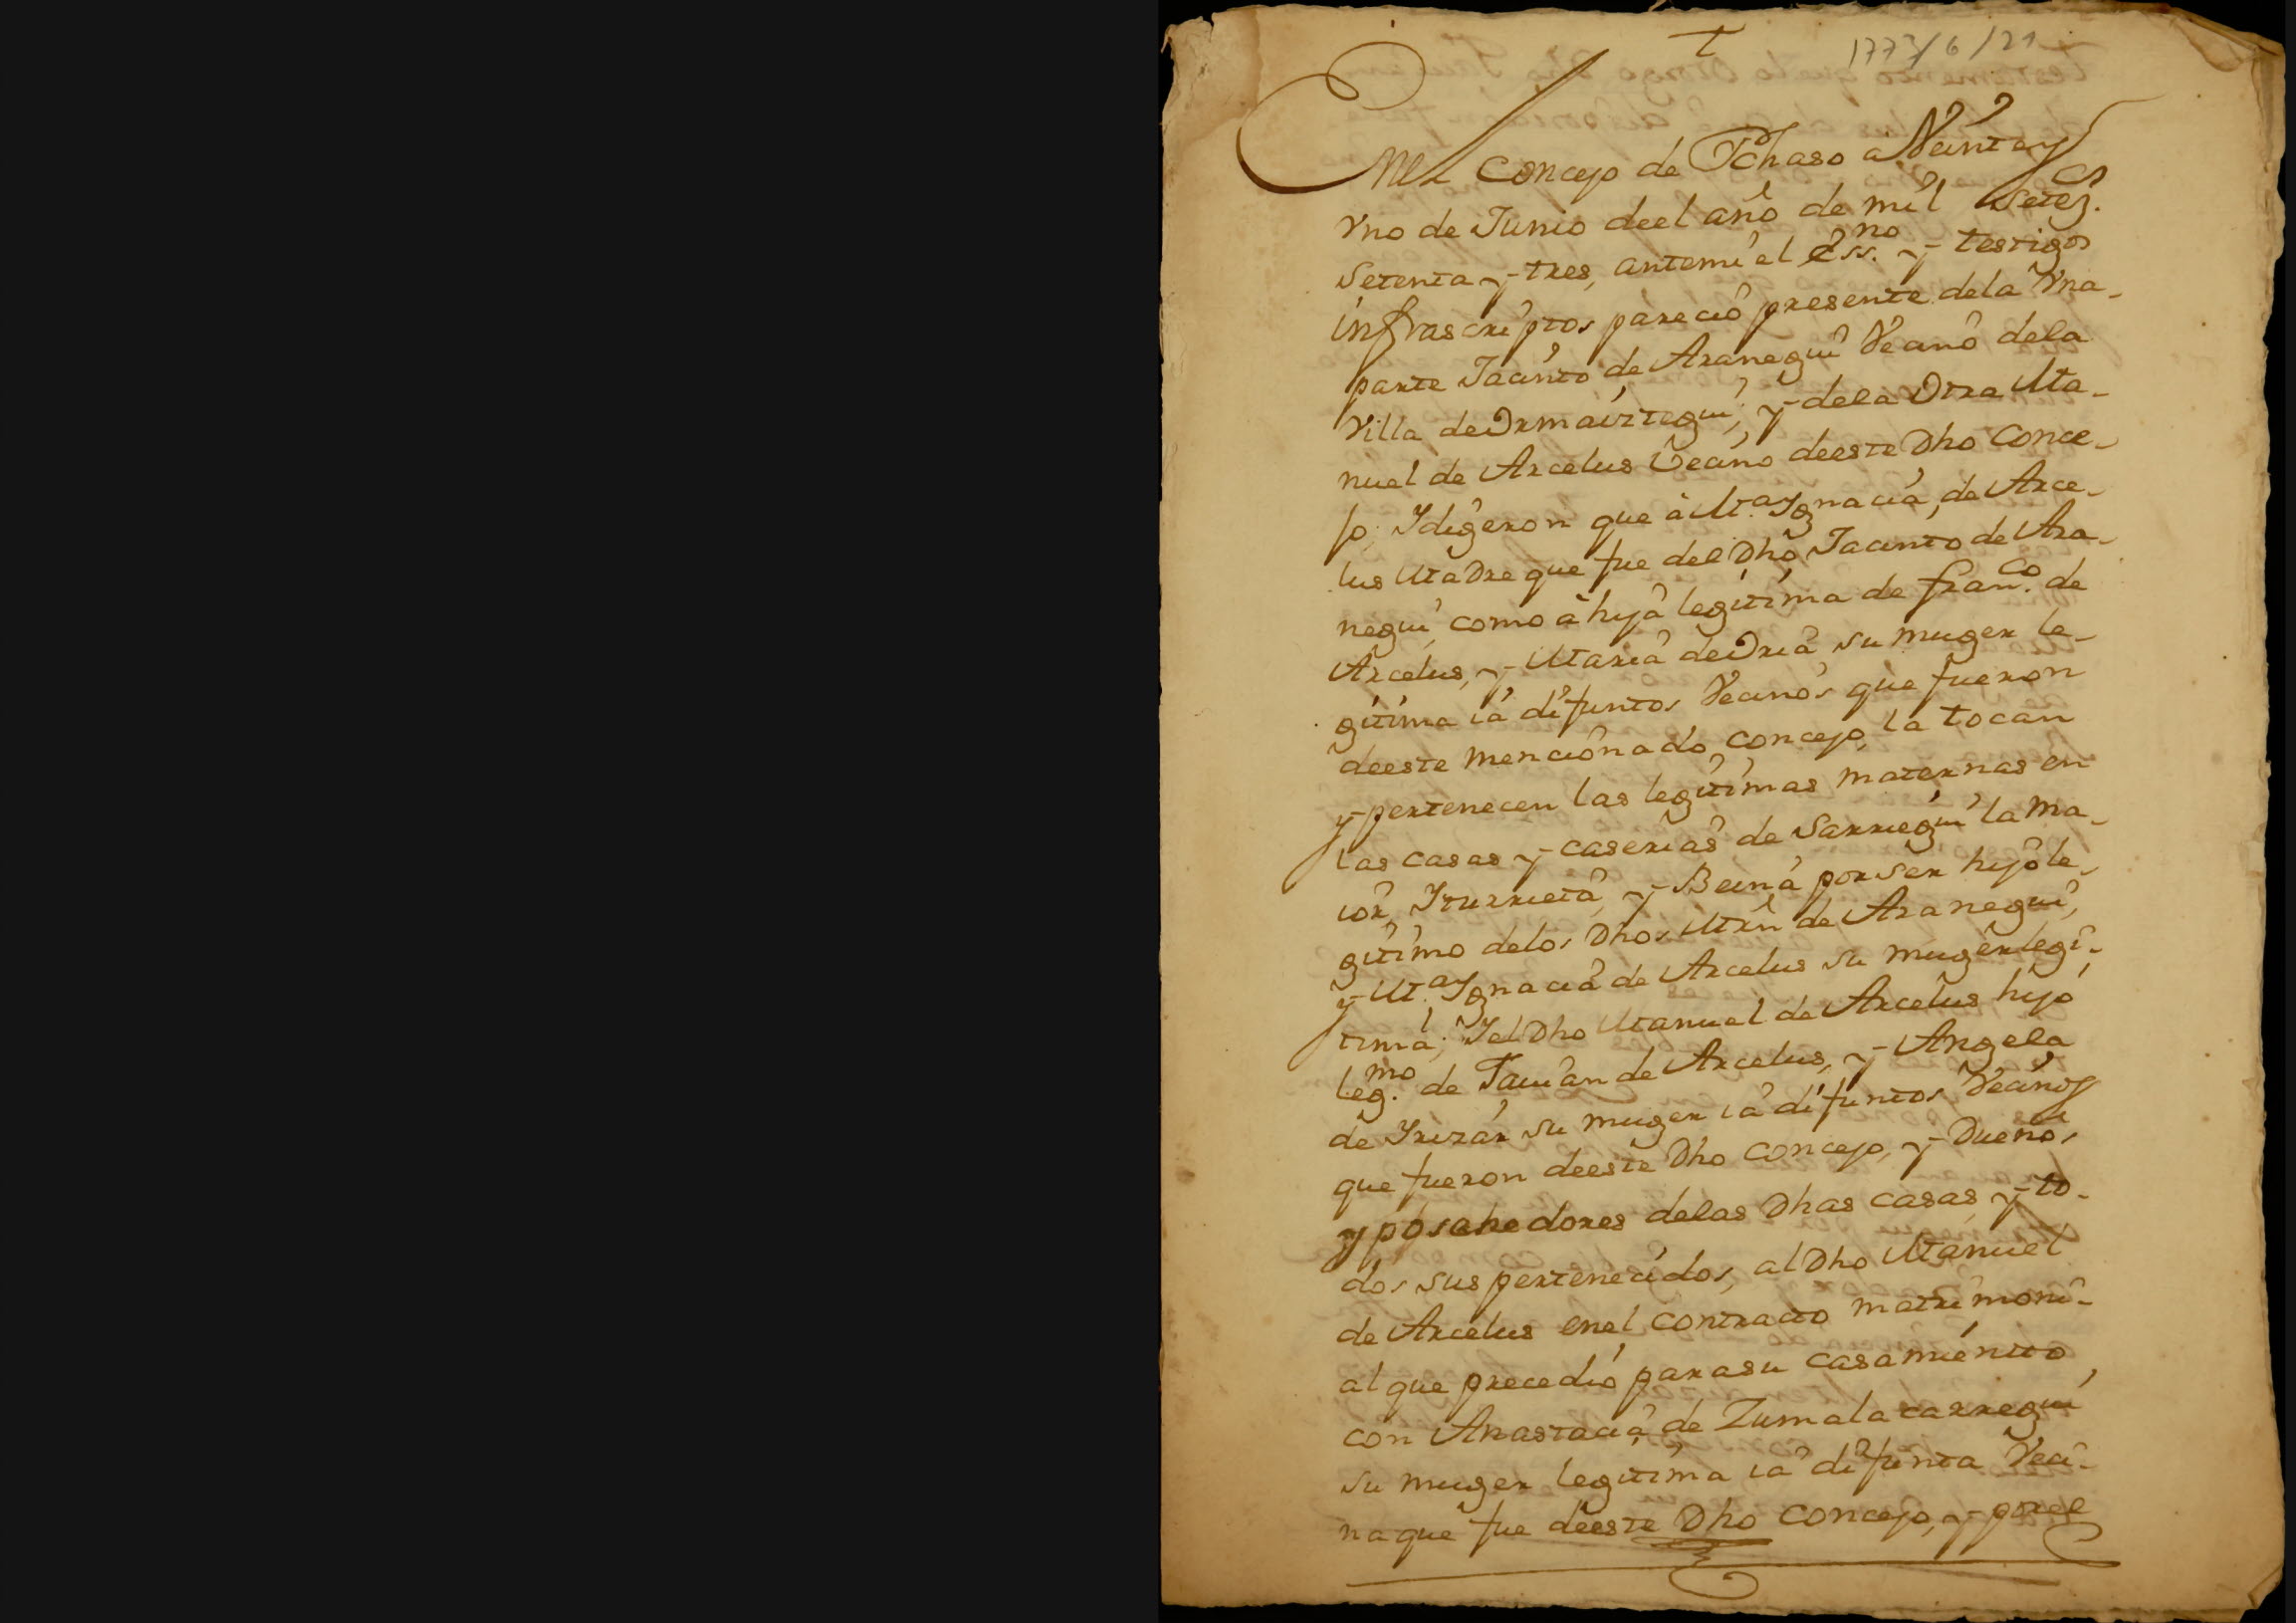 t
1773/6/21
Enel Concejo de Ychaso a Veinte y
Vno de Junio deel año de mil Setez.
Setenta y tres, antemi el Ess.no y testigos
infrascriptos parecio presente dela Vna
parte Jacinto de Aranegui Vecino dela
Villa de Ormaiztegui, y dela Otra Ma-
nuel de Arcelus Vecino deeste Dho Conce-
jo; Y digeron que à M.a Ygnacia, de Arce-
lus Madre que fue del Dho Jacinto de Ara-
negui, como à hija legitima de fran.co de
Arcelus, y Maria de Oria su muger le-
gitima ia difuntos Vecinos que fueron
deeste mencionado Concejo, la tocan
y pertenecen las legitimas maternas en
las casas y caserias de Sarriegui la ma-
ior, Yturrieta, y Beina por ser hijo le-
gitimo delos Dhos Mrn de Aranegui,
y M.a Ygnacia de Arcelus su muger legi-
tima; Y el Dho Manuel de Arcelus hijo
leg.mo de Damian de Arcelus, y Angela
de Yrizar su muger ia difuntos Vecinos
que fueron deeste Dho Concejo, y Dueños
y posehedores delas Dhas casas, y to-
dos sus pertenecidos, al Dho Manuel
de Arcelus enel contracto matrimoni-
al que precedio para su casamiento
con Anastacia de Zumalacarregui
su muger legitima ia difunta Veci-
na que fue deeste Dho Concejo, y por el